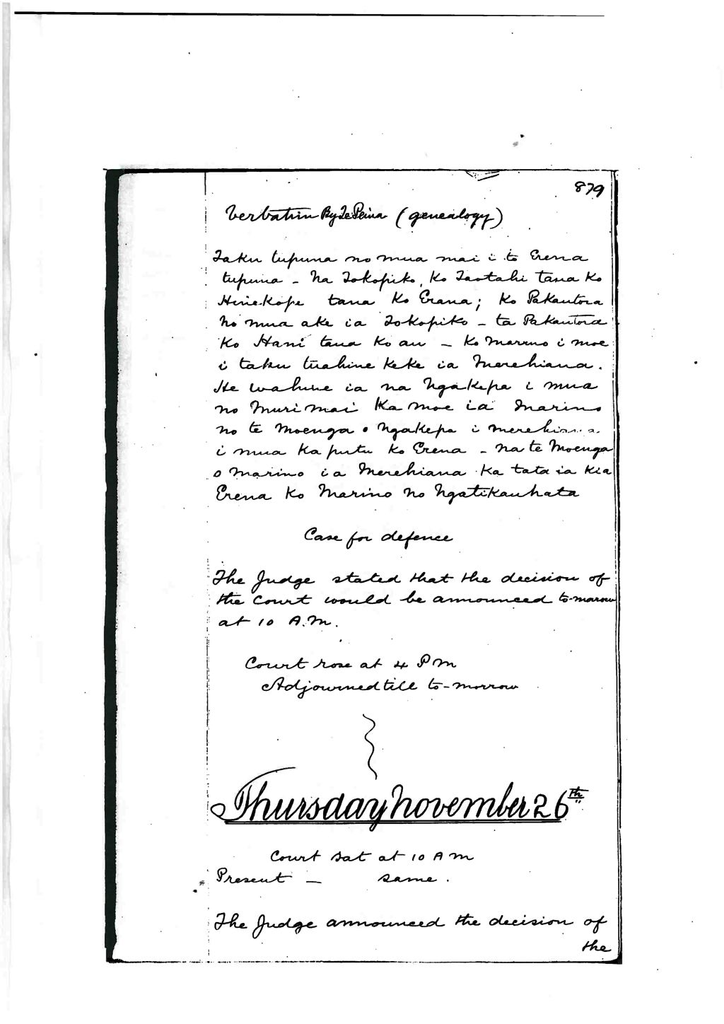 879
Verbatim By Te Peina (genealogy)
Taku tupuna no mua mai i to Erena
tupuna - Na Tokopiko, Ko Taotahi tana Ko
Hine.Kope tana Ko Erana; Ko Pakautora
no mua ake ia Tokopiko - ta Pakautora
Ko Hani tana Ko au - Ko Marino i moe
i taku tuahine keke ia Merehiana.
He wahine ia na Ngakepa i mua
no muri mai Ka moe ia Marino
no te Moenga o Ngakepa i merehiana
i mua Ka puta Ko Erena - na te Moenga
o Marino ia Merehiana Ka tata ia Kia
Erena Ko Marino no Ngatikauhata
Case for defence
The Judge stated that the decision of
the Court would be announced to-morrow
at 10 A.M.
Court rose at 4 P m
Adjourned till to-morrow
Thursday November 26th
Court sat at 10 A m
Present — same.
The Judge announced the decision of
the